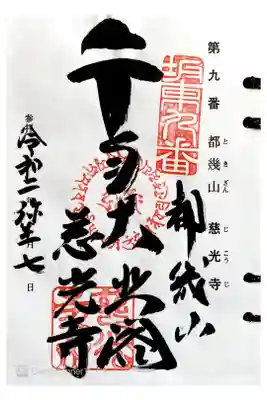 第九番 都幾山 慈光寺
ときざん じこうじ
坂東九番
都幾山
千手大悲閣
慈光寺
令和二弥生月七日